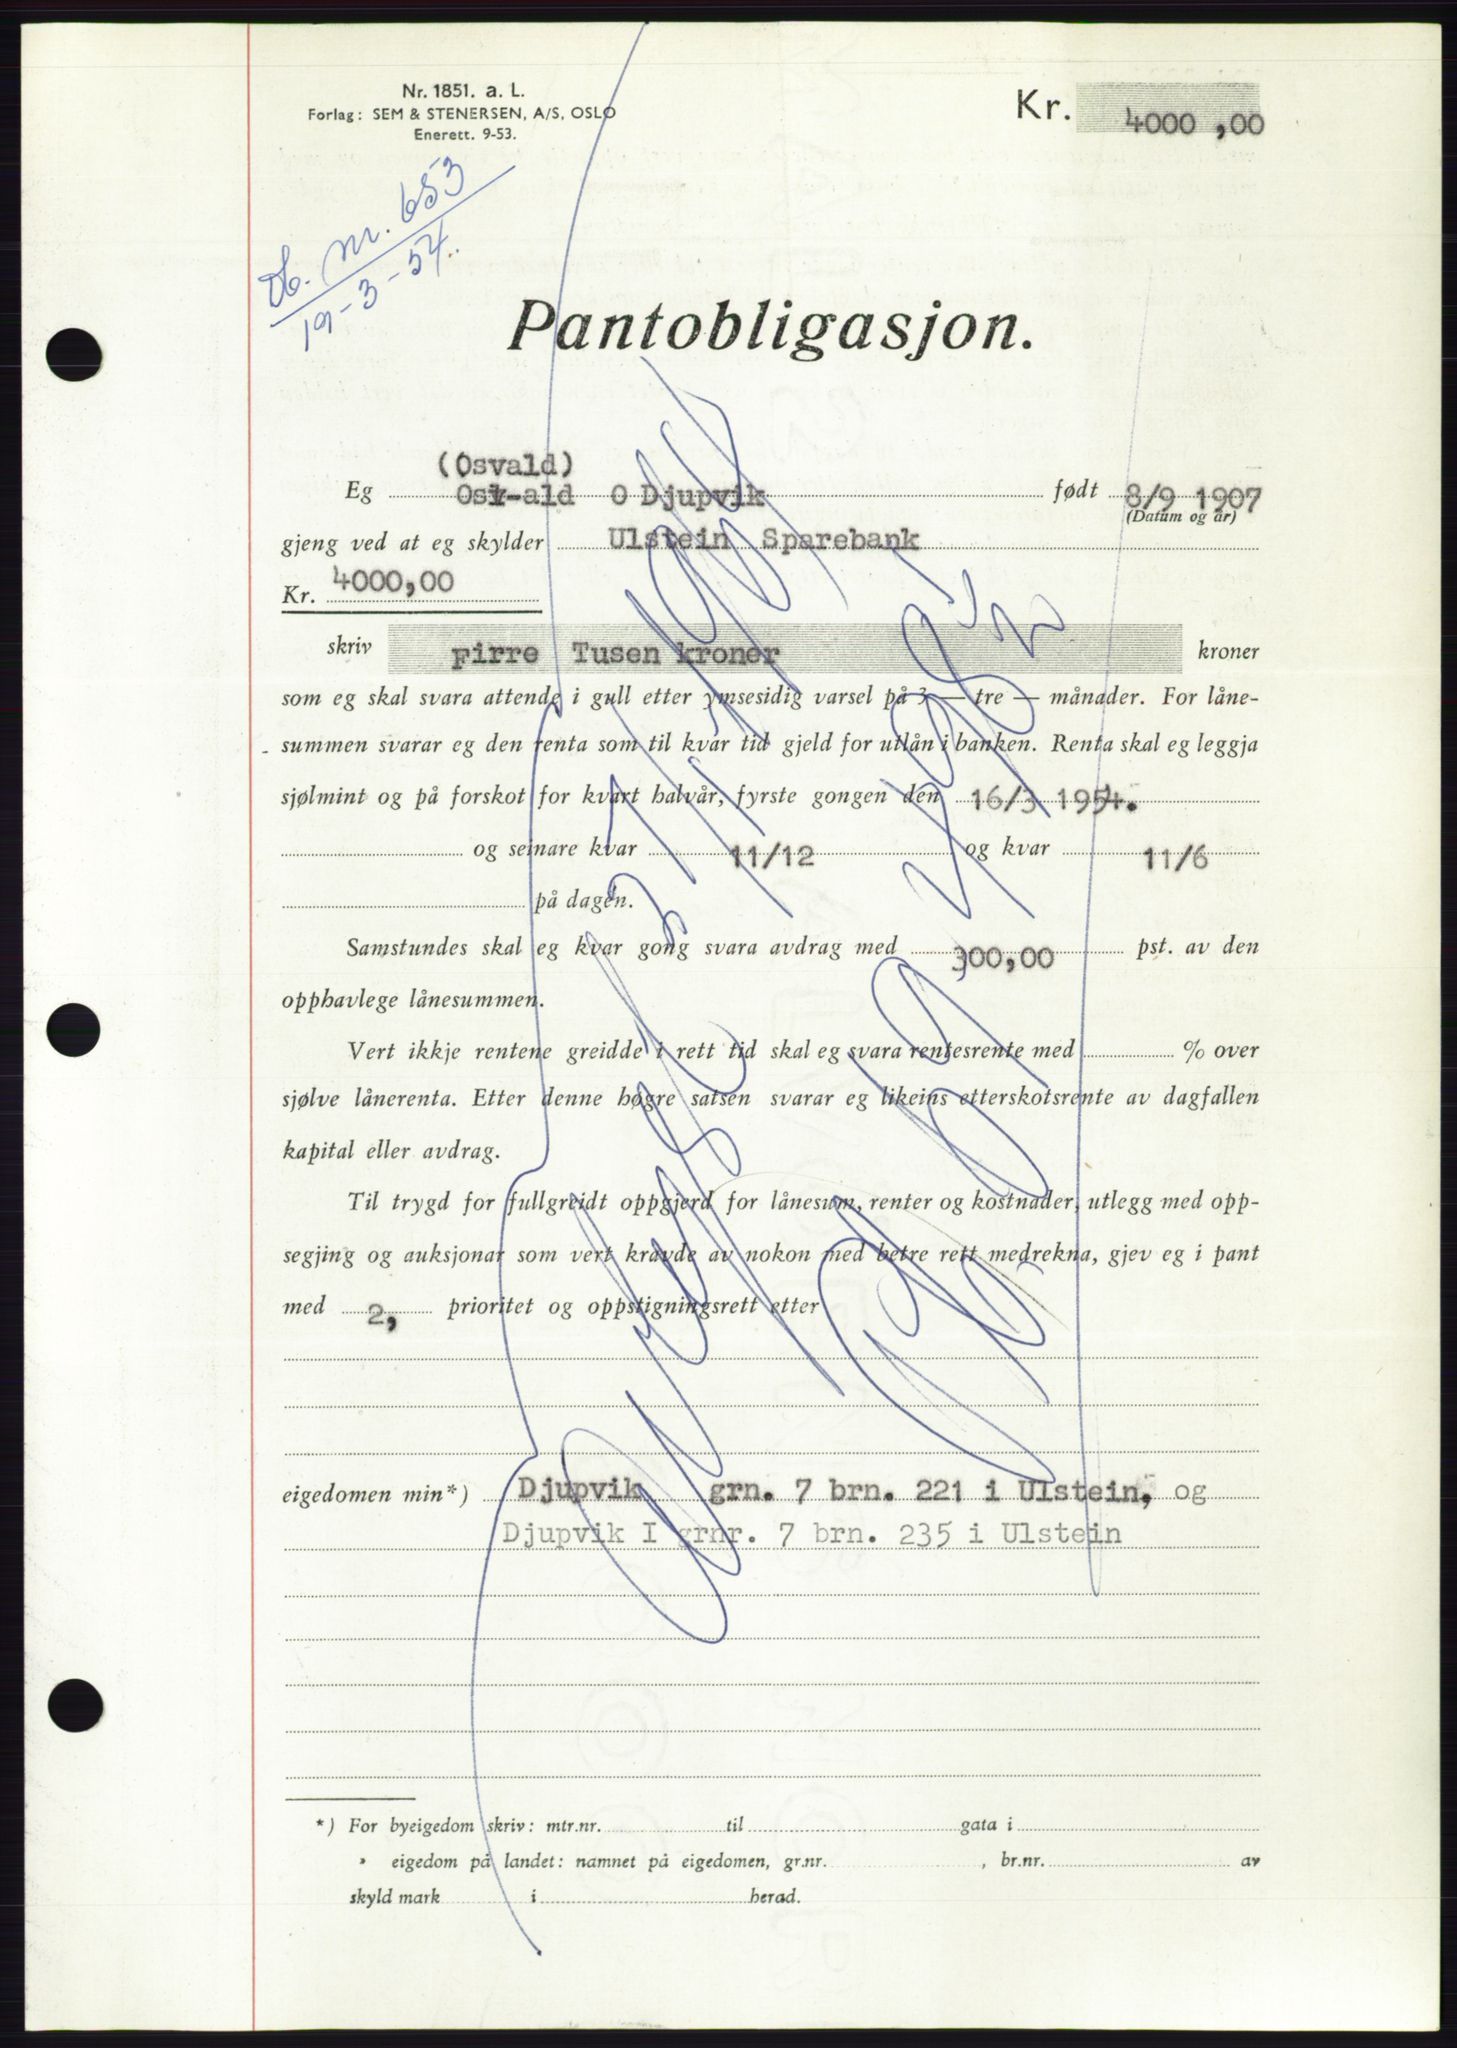 Nr. 1851. a. L.
Forlag: SEM & STENERSEN, A/S, OSLO
Enerett. 9-53.
Kr. 4000,00
Db. nr. 653
19-3-54.
Pantobligasjon.
(Osvald)
Eg Osv-ald O Djupvik født 8/9 1907
(Datum og år)
gjeng ved at eg skylder Ulstein Sparebank
Kr. 4000,00
skriv Firre Tusen kroner kroner
som eg skal svara attende i gull etter ymsesidig varsel på 3 — tre — månader. For låne-
summen svarar eg den renta som til kvar tid gjeld for utlån i banken. Renta skal eg leggja
sjølmint og på forskot for kvart halvår, fyrste gongen den 16/3 1954.
og seinare kvar 11/12 og kvar 11/6
på dagen.
Samstundes skal eg kvar gong svara avdrag med 300,00 pst. av den
opphavlege lånesummen.
Vert ikkje rentene greidde i rett tid skal eg svara rentesrente med % over
sjølve lånerenta. Etter denne høgre satsen svarar eg likeins etterskotsrente av dagfallen
kapital eller avdrag.
Til trygd for fullgreidt oppgjerd for lånesum, renter og kostnader, utlegg med opp-
segjing og auksjonar som vert kravde av nokon med betre rett medrekna, gjev eg i pant
med 2, prioritet og oppstigningsrett etter
eigedomen min*) Djupvik grn. 7 brn. 221 i Ulstein, og
Djupvik I grnr. 7 brn. 235 i Ulstein
*) For byeigedom skriv: mtr.nr. til gata i
» eigedom på landet: namnet på eigedomen, gr.nr. , br.nr. av
skyld mark i herad.